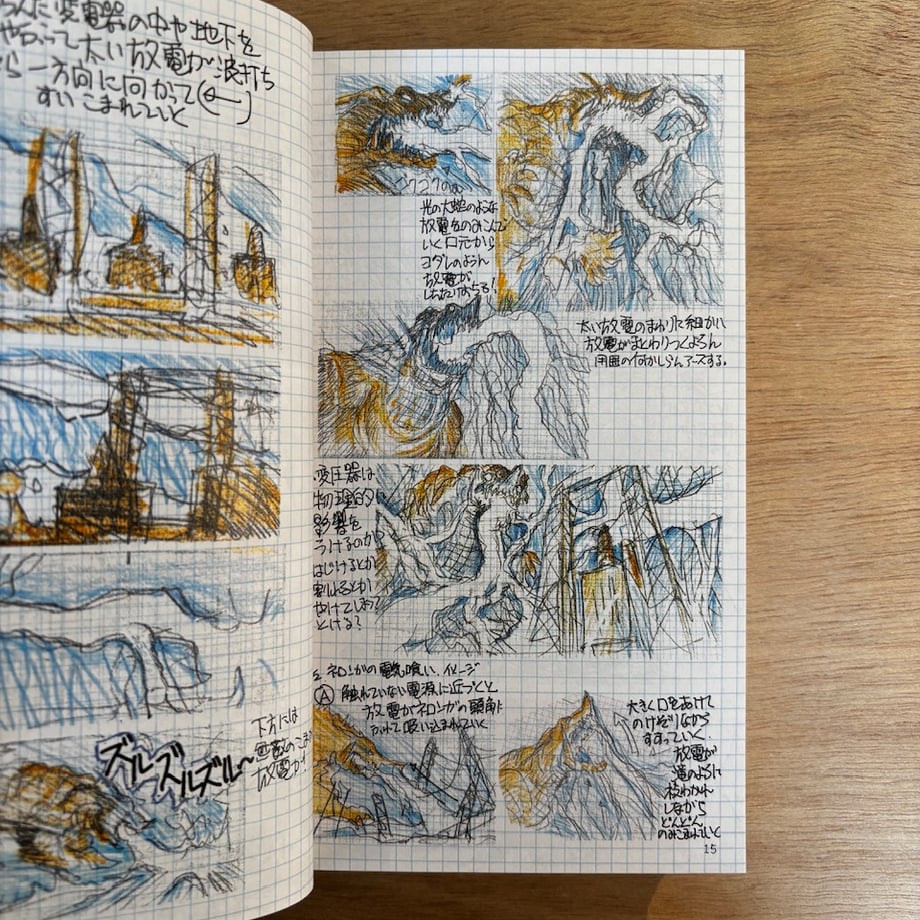 に変電器の中や地下を
って太い放電が波打ち
一方向に向かって(←)
すいこまれていと
下方には
無数のこま
放電が
ズルズルズル〜
ゴクゴクのむ
光の大蛇のような
放電をのみこんで
いく口元から
ヨダレのように
放電が
したたりおちる!
太い放電のまわりに細かい
放電がまとわりつくように
周囲の何かしらにアースする。
変圧器は
物理的に
影響を
うけるのか?
はじけるとか
割れるとか
やけてしまう?
とける?
ネロンガの電気喰い、イメージ
Ⓐ 触れていない電源に近づくと
放電がネロンガの頭角に
ふれて吸い込まれていく
大きく口をあけて
のけぞりながら
すすっていく
放電が
滝のように
枝わかれ
しながら
どんどん
のみこまれていと
15